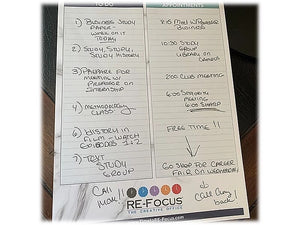 TO DO
APPOINTMENTS
1) BUSINESS STUDY
PAPER -
WORK ON IT
TODAY
2) STUDY, STUDY,
STUDY HISTORY
3) PREPARE FOR
MEETING W/
PROFESSOR ON
INTERNSHIP
4) METHODOLOGY
CLASS
6) HISTORY IN
FILM - WATCH
EPISODES 1+2
7) TEXT
STUDY
GROUP
CALL
MOM!!
8:15 MEET W/
BUSINESS
10:30 STUDY
GROUP
LIBRARY ON
CAMPUS
2:00 CLUB MEETING
6:00
MEETING
6:00 SHARP
FREE TIME!!
GO SHOP FOR CAREER
FAIR ON WEDNESDAY!
CALL
back!
RE-FOCUS
THE CREATIVE OFFICE